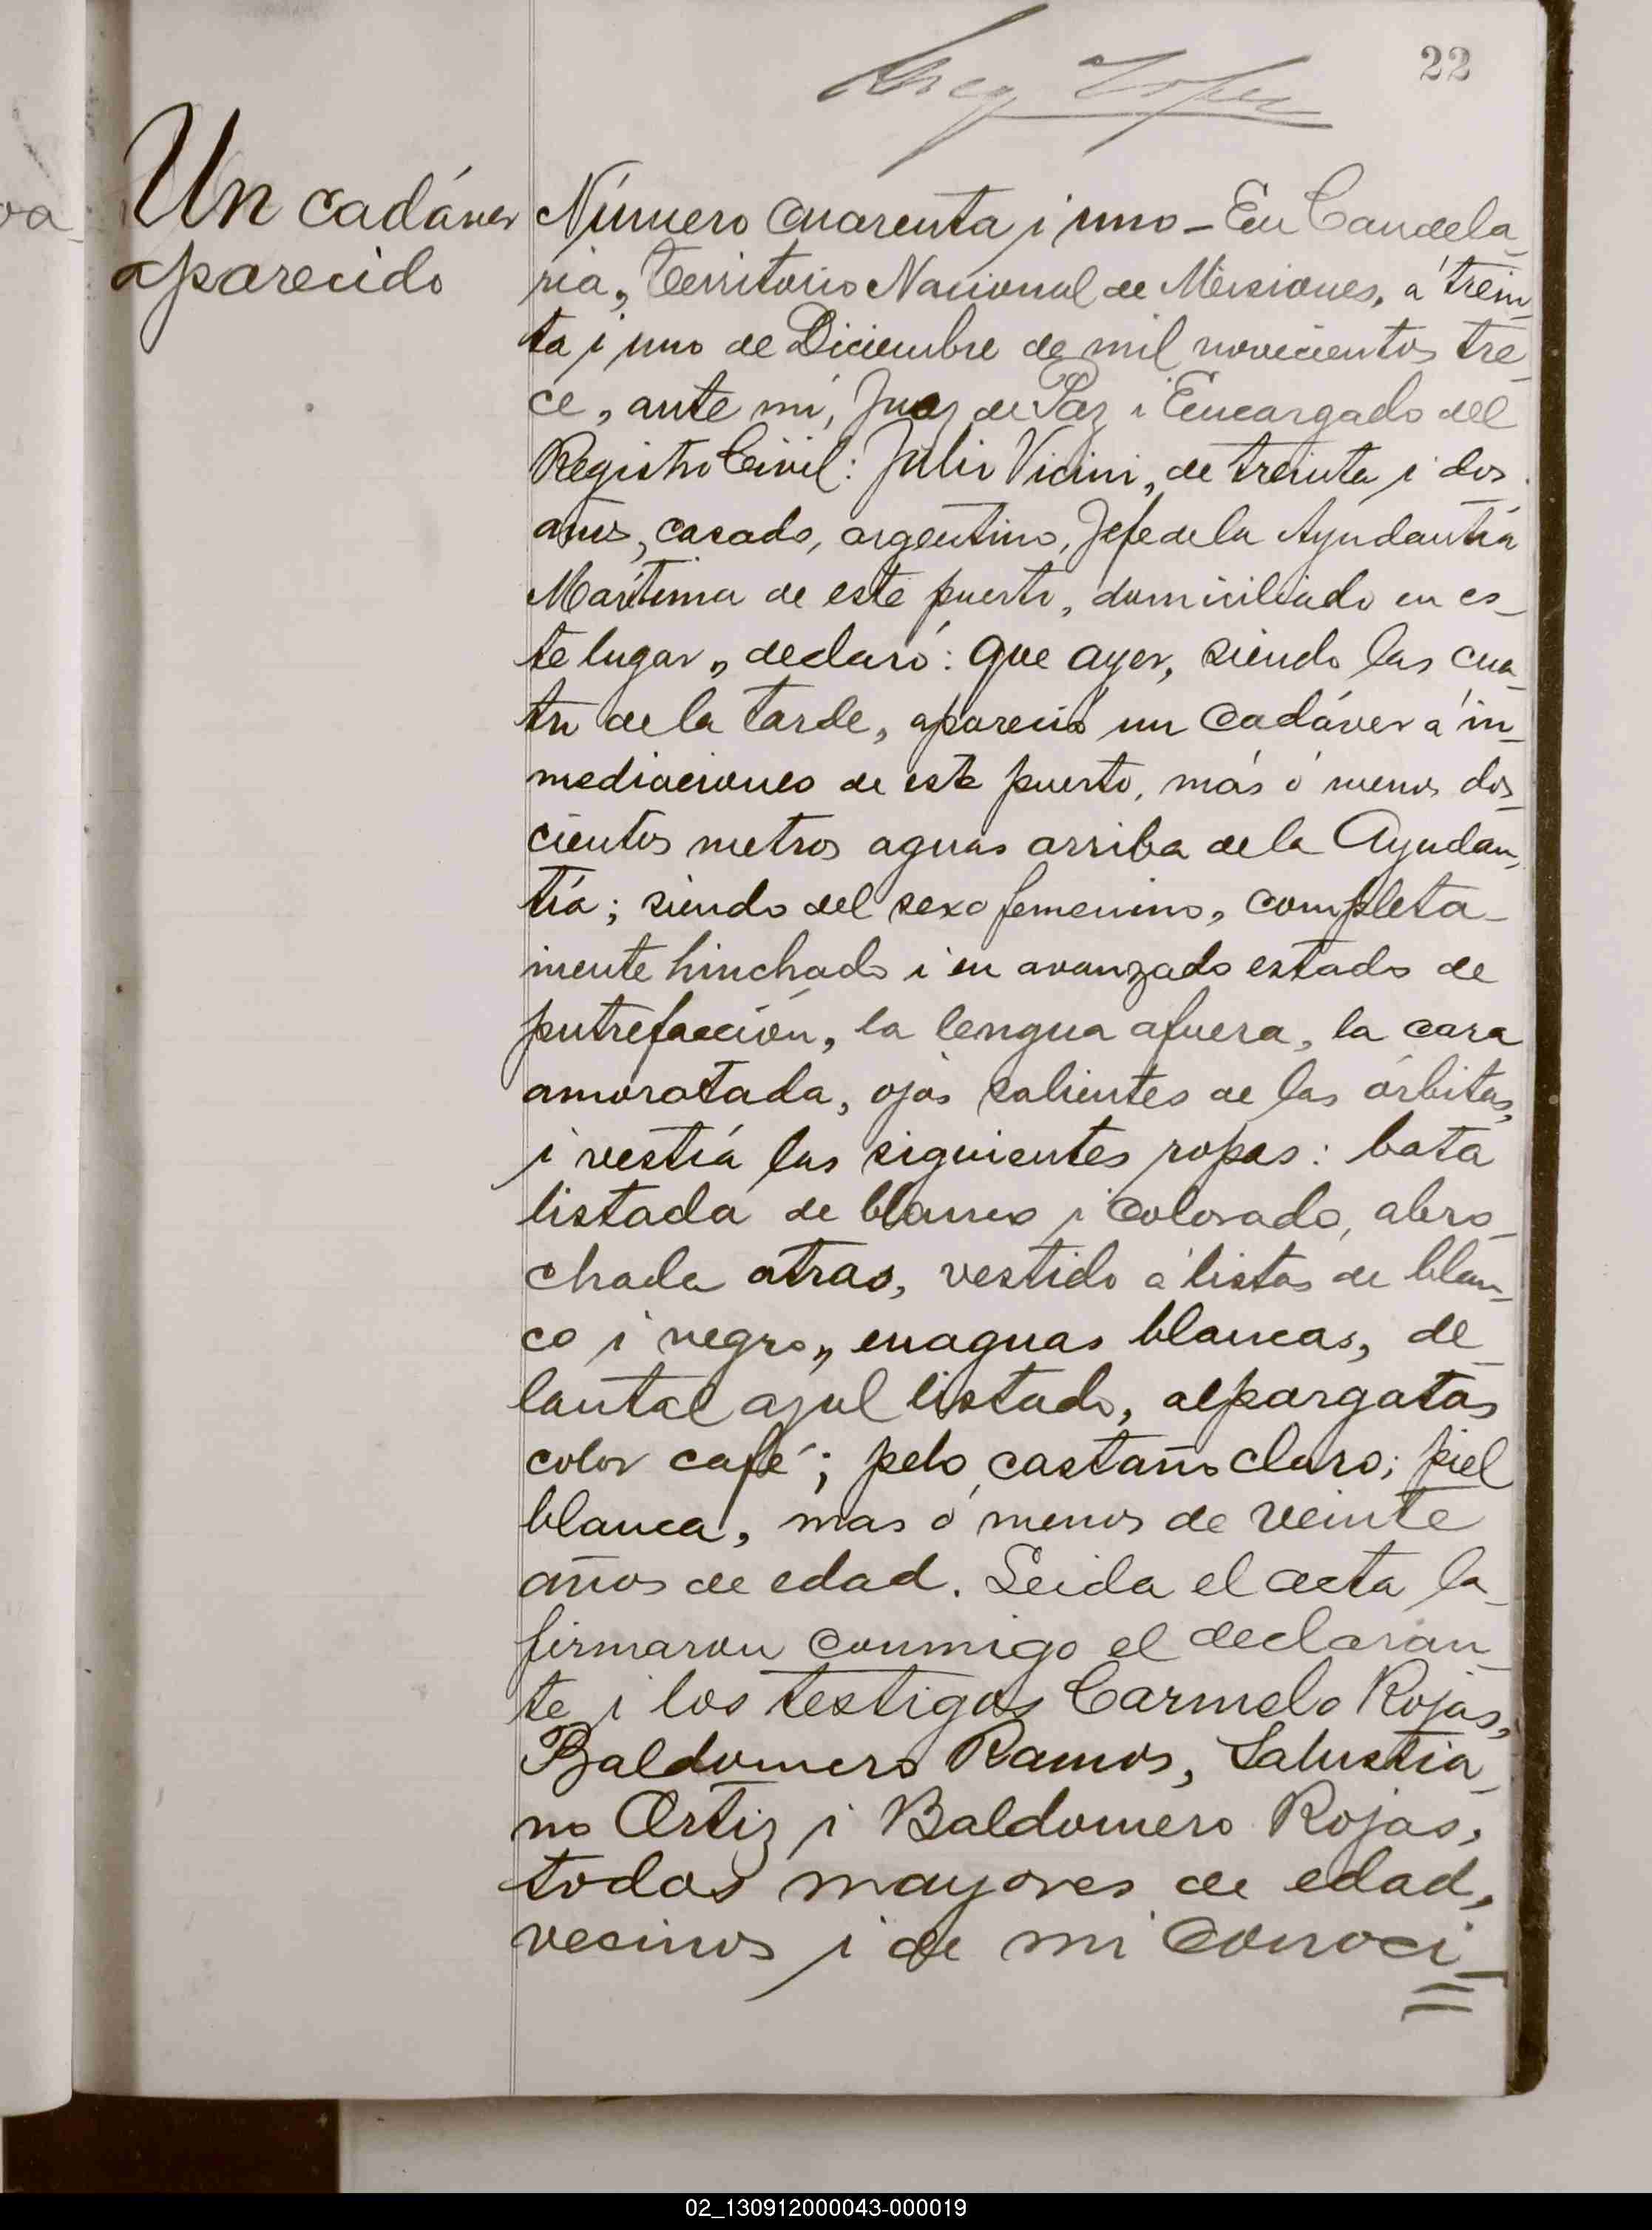 22
Un cadáver
aparecido
Número cuarenta i uno - En Candela-
ria, Territorio Nacional de Misiones, á trein-
ta i uno de Diciembre de mil novecientos tre-
ce, ante mí, Juez de Paz i Encargado del
Registro Civil: Julio Vicini, de treinta i dos
años, casado, argentino, Jefe de la Ayudantía
Marítima de este puerto, domiciliado en es-
te lugar, declaró: Que ayer, siendo las cua-
tro de la tarde, apareció un cadáver á in-
mediaciones de este puerto, más ó menos dos-
cientos metros aguas arriba de la Ayudan-
tía; siendo del sexo femenino, completa-
mente hinchado i en avanzado estado de
putrefacción, la lengua afuera, la cara
amoratada, ojos salientes de las órbitas,
i vestía las siguientes ropas: bata
listada de blanco i colorado, abro-
chada atras, vestido á listas de blan-
co i negro, enaguas blancas, de-
lantal azul listado, alpargatas
color café; pelo castaño claro; piel
blanca, mas ó menos de veinte
años de edad. Leida el acta la
firmaron conmigo el declaran-
te i los testigos Carmelo Rojas,
Baldomero Ramos, Salustia-
no Ortiz i Baldomero Rojas,
todos mayores de edad,
vecinos i de mi conoci-
02_130912000043-000019